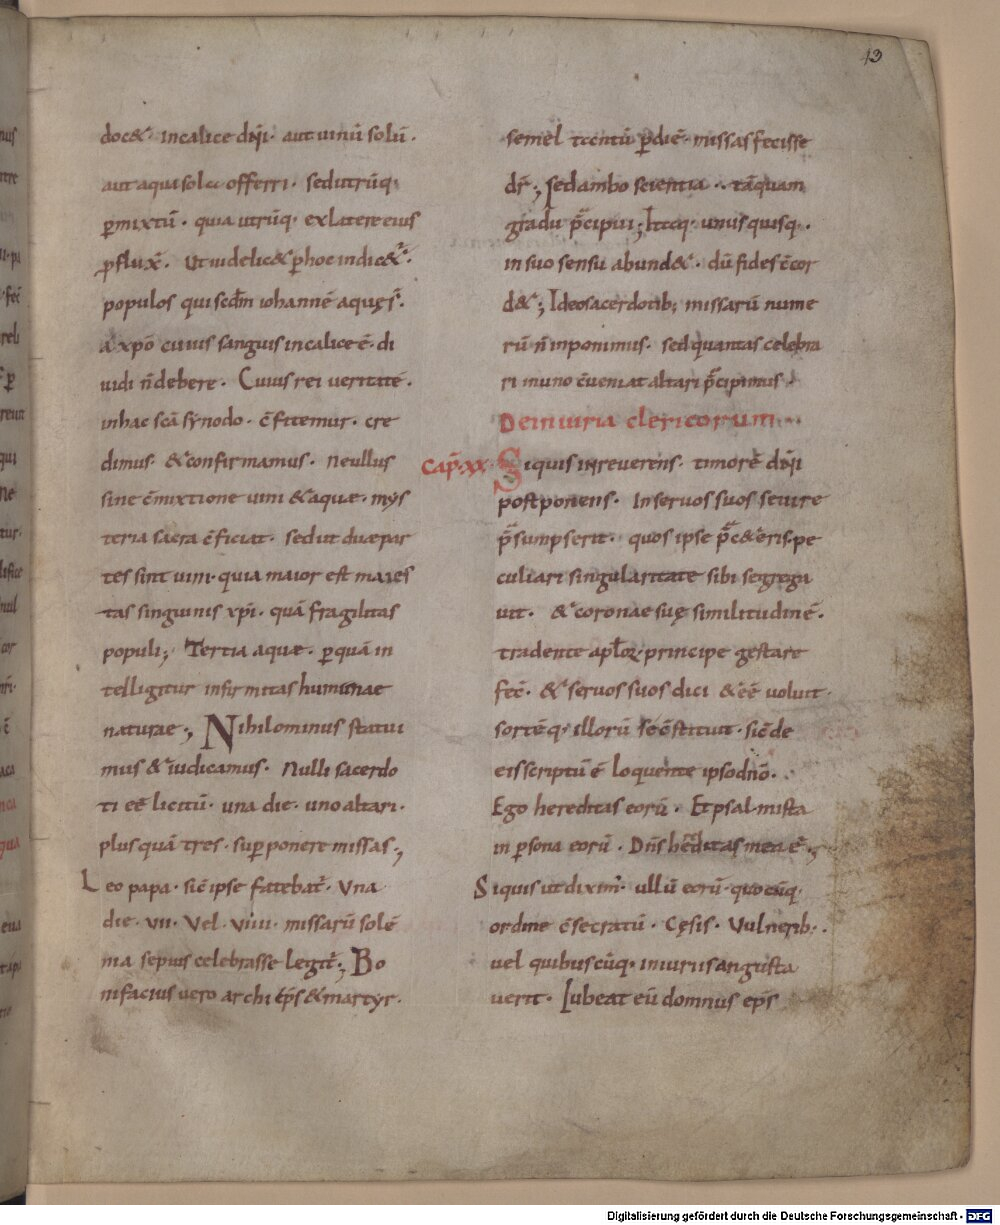 43
doc&. in calice dn̄i. aut uinū solū.
aut aqua sola offerri. sed utrūq;
ꝑmixtū. quia utrūq; ex latere eius
ꝓflux̄. Ut uidelic& ꝑ hoc indic&ʳ.
populos qui scd̄m iohannē aquę sͭ.
a xp̄o cuius sanguis in calice ē. di
uidi n̄ debere. Cuius rei ueritatē.
in hac sc̄a synodo. c̄fitemur. cre
dimus. & confirmamus. Ne ullus
sine c̄mixtione uini & aquae. mys
teria sacra c̄ficiat. sed ut duae par
tes sint uini. quia maior est maies
tas sanguinis xp̄i. quā fragilitas
populi; Tertia aquae. ꝑ quā in
telligitur infirmitas humanae
naturae; Nihilominus statui
mus & iudicamus. Nulli sacerdo
ti eē licitū. una die. uno altari.
plus quā tres. suꝑponere missas;
Leo papa. sic̄ ipse fatebat̄. Una
die. VII. Vel. VIIII. missarū solē
nia sepius celebrasse legit̄; Bo
nifacius uero archi ep̄s & martyr.
semel tantū ꝑ diē. missas fecisse
dr̄; sed ambo scientia. tāquam
gradu p̄cipui; Itaq; unusquisq;.
in suo sensu abund&. dū fides c̄cor
d&; Ideo sacerdotib; missarū nume
rū n̄ inponimus. sed quantas celebra
ri in uno c̄ueniat altari p̄cipimus.
De iniuria clericorum
Cap̄. xx. Si quis inreuerens. timorē dn̄i
postponens. In seruos suos seuire
p̄sumpserit. quos ipse p̄ c&eris. pe
culiari singularitate sibi segrega
uit. & coronae suę similitudinē.
tradente apl̄oꝝ principe gestare
fec̄. & seruos suos dici & eē uoluit.
sortēq; illorū se c̄stituit. sic̄ de
eis scriptū ē loquente ipso dn̄o.
Ego hereditas eorū. Et psalmista
in ꝑsona eorū. Dn̄s hereditas mea ē;
Si quis ut diximꝰ. ullū eorū. quocūq;
ordine c̄secratū. Cęsis. Vulnerib;.
uel quibuscūq; iniuriis angusta
uerit. Iubeat eū domnus ep̄s
Digitalisierung gefördert durch die Deutsche Forschungsgemeinschaft - DFG